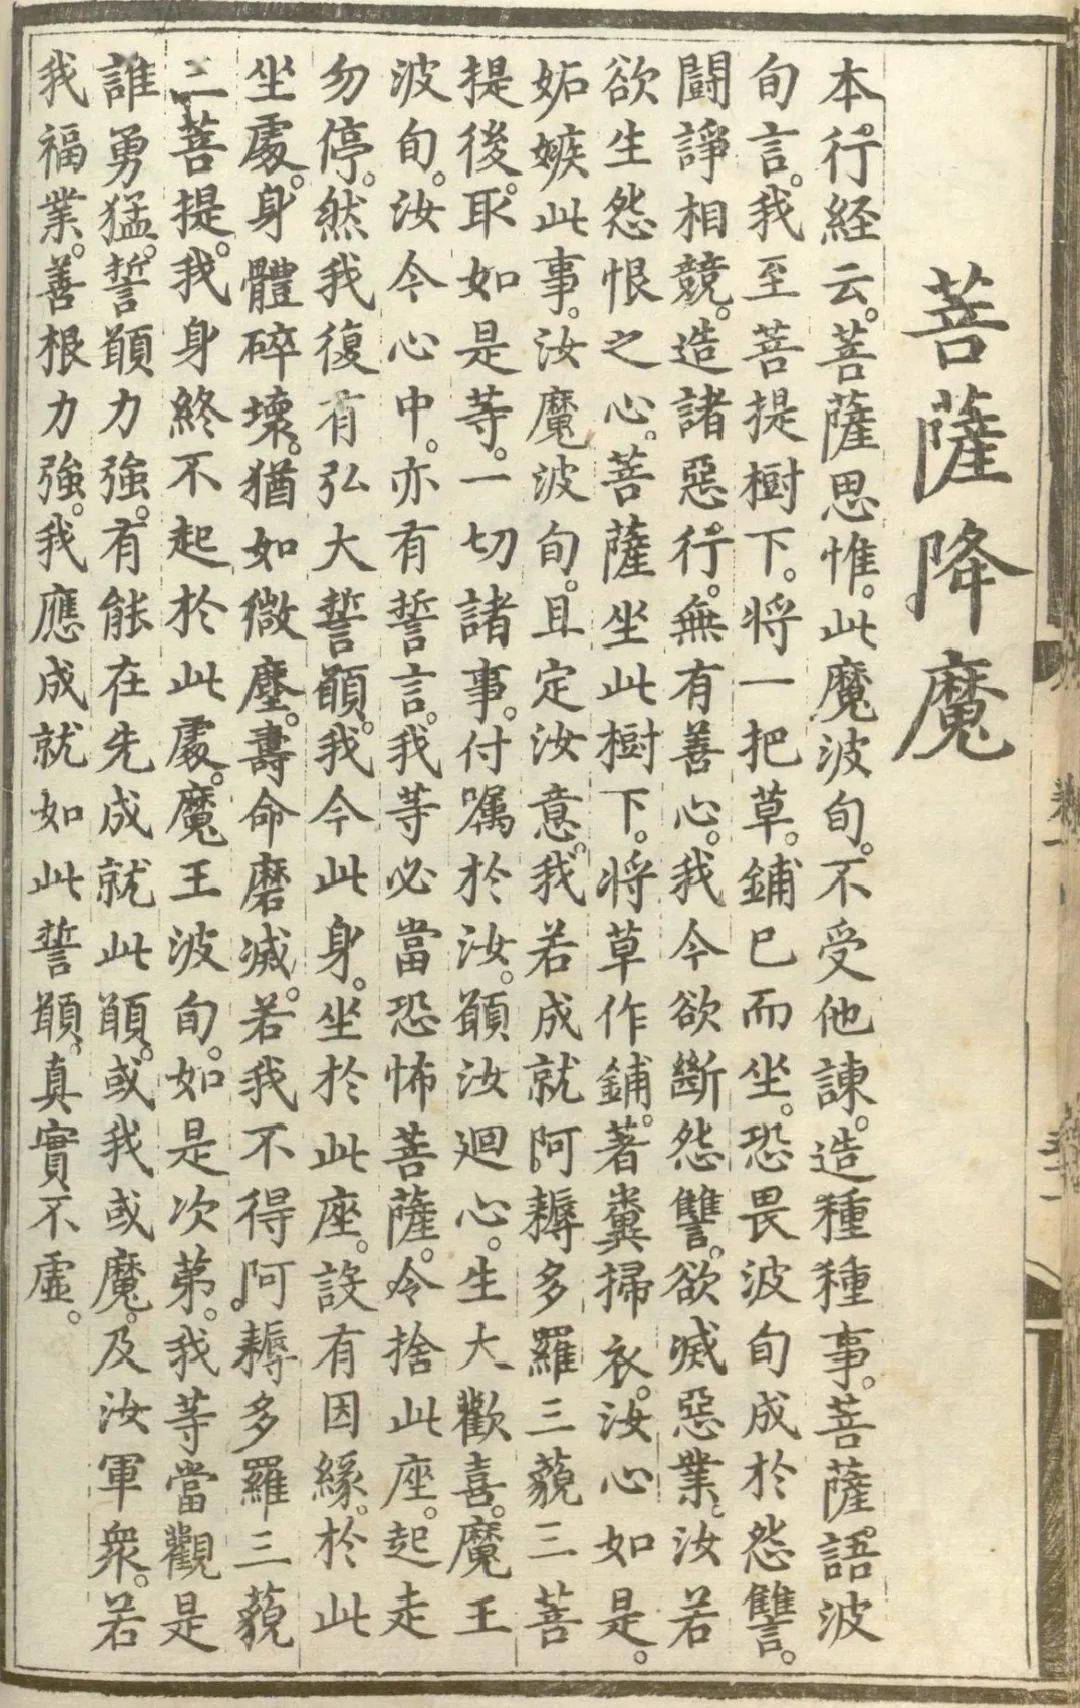 菩薩降魔
本行經云。菩薩思惟。此魔波旬。不受他諫。造種種事。菩薩語波
旬言。我至菩提樹下。將一把草。鋪已而坐。恐畏波旬成於怨讐。
鬪諍相競。造諸惡行。無有善心。我今欲斷怨讐。欲滅惡業。汝若
欲生怨恨之心。菩薩坐此樹下。將草作鋪。著糞掃衣。汝心如是。
妬嫉此事。汝魔波旬。且定汝意。我若成就。阿耨多羅三藐三菩
提後。取如是等。一切諸事。付囑於汝。願汝廻心。生大歡喜。魔王
波旬。汝今心中。亦有誓言。我等必當恐怖菩薩。令捨此座。起走
勿停。然我復有弘大誓願。我今此身。坐於此座。設有因緣。於此
坐處。身體碎壞。猶如微塵。壽命磨滅。若我不得。阿耨多羅三藐
三菩提。我身終不起於此處。魔王波旬。如是次第。我等當觀是
誰勇猛。誓願力強。有能在先成就此願。或我或魔。及汝軍衆。若
我福業。善根力強。我應成就如此誓願。真實不虛。